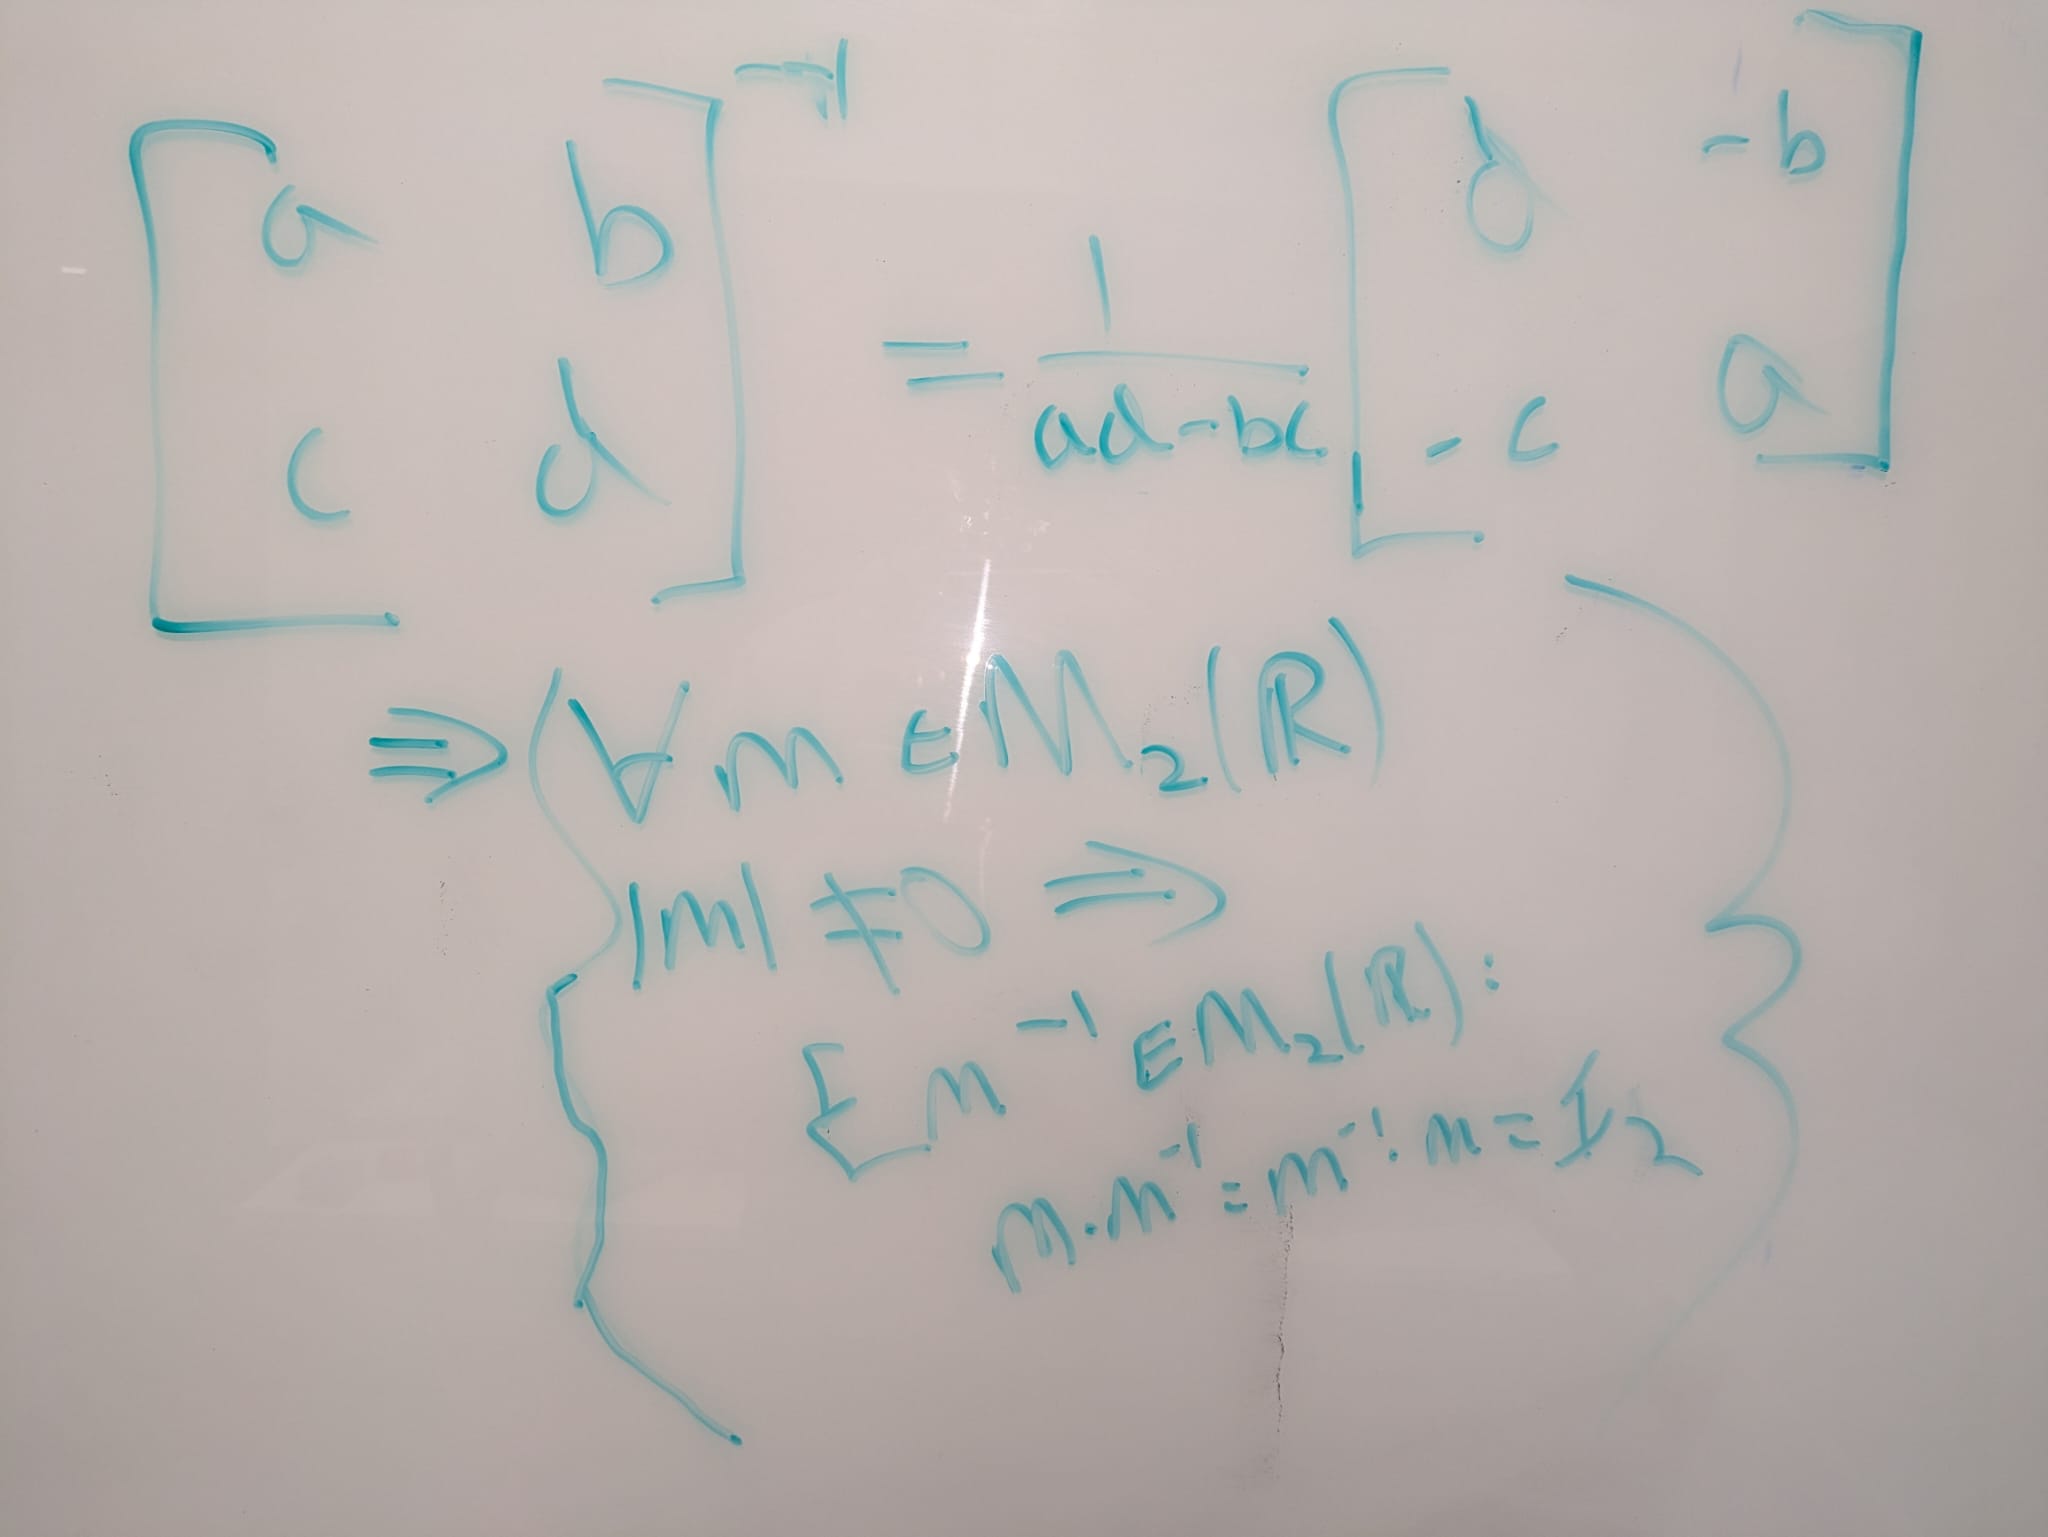 [a b; c d]^-1 = 1/(ad-bc) [d -b; -c a]
⇒ {∀ m ∈ M₂(ℝ)
|m| ≠ 0 ⇒
[m⁻¹ ∈ M₂(ℝ) :
m·m⁻¹ = m⁻¹·m = I₂ }